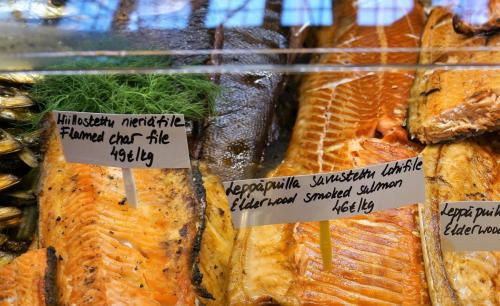 Hiillostettu nieriäfile
Flamed char file
49€/kg
Leppäpuilla savustettu Lohifile
Elderwood smoked salmon
46€/kg
Leppäpuil
Elderwood